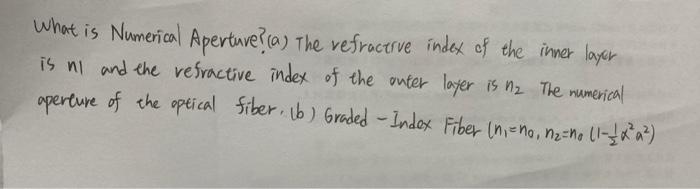 What is Numerical Aperture?(a) The refractive index of the inner layer
is n1 and the refractive index of the outer layer is n₂ The numerical
aperture of the optical fiber. (b) Graded-Index Fiber (n₁=n₀, n₂=n₀ (1-½α²a²)